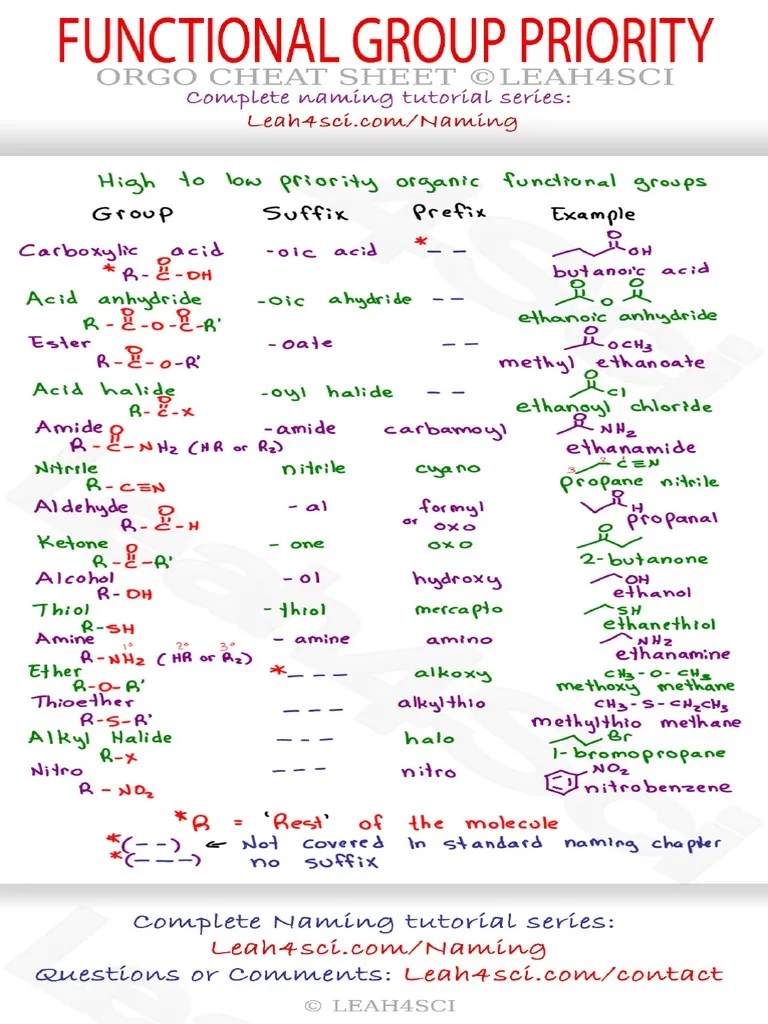 FUNCTIONAL GROUP PRIORITY
ORGO CHEAT SHEET ©LEAH4SCI
Complete naming tutorial series:
Leah4sci.com/Naming
High to low priority organic functional groups
Group Suffix Prefix Example
Carboxylic acid -oic acid *-- OH
*R-C-OH O butanoic acid
Acid anhydride -oic ahydride -- O O O
R-C-O-C-R' O O ethanoic anhydride
Ester -oate -- O OCH3
R-C-O-R' O methyl ethanoate
Acid halide -oyl halide -- O Cl
R-C-X O ethanoyl chloride
Amide -amide carbamoyl O NH2
R-C-NH2 (HR or R2) O ethanamide
Nitrile nitrile cyano 3 2 1 C≡N
R-C≡N propane nitrile
Aldehyde -al formyl O H
R-C-H O or oxo propanal
Ketone -one oxo O
R-C-R' O 2-butanone
Alcohol -ol hydroxy OH
R-OH ethanol
Thiol -thiol mercapto SH
R-SH ethanethiol
Amine -amine amino NH2
R-NH2 (HR or R2) 1° 2° 3° ethanamine
Ether *--- alkoxy CH3-O-CH3
R-O-R' methoxy methane
Thioether --- alkylthio CH3-S-CH2CH3
R-S-R' methylthio methane
Alkyl Halide --- halo Br
R-X 1-bromopropane
Nitro --- nitro NO2
R-NO2 nitrobenzene
*R = 'Rest' of the molecule
*(--) ← Not covered in standard naming chapter
*(---) no suffix
Complete Naming tutorial series:
Leah4sci.com/Naming
Questions or Comments: Leah4sci.com/contact
© LEAH4SCI